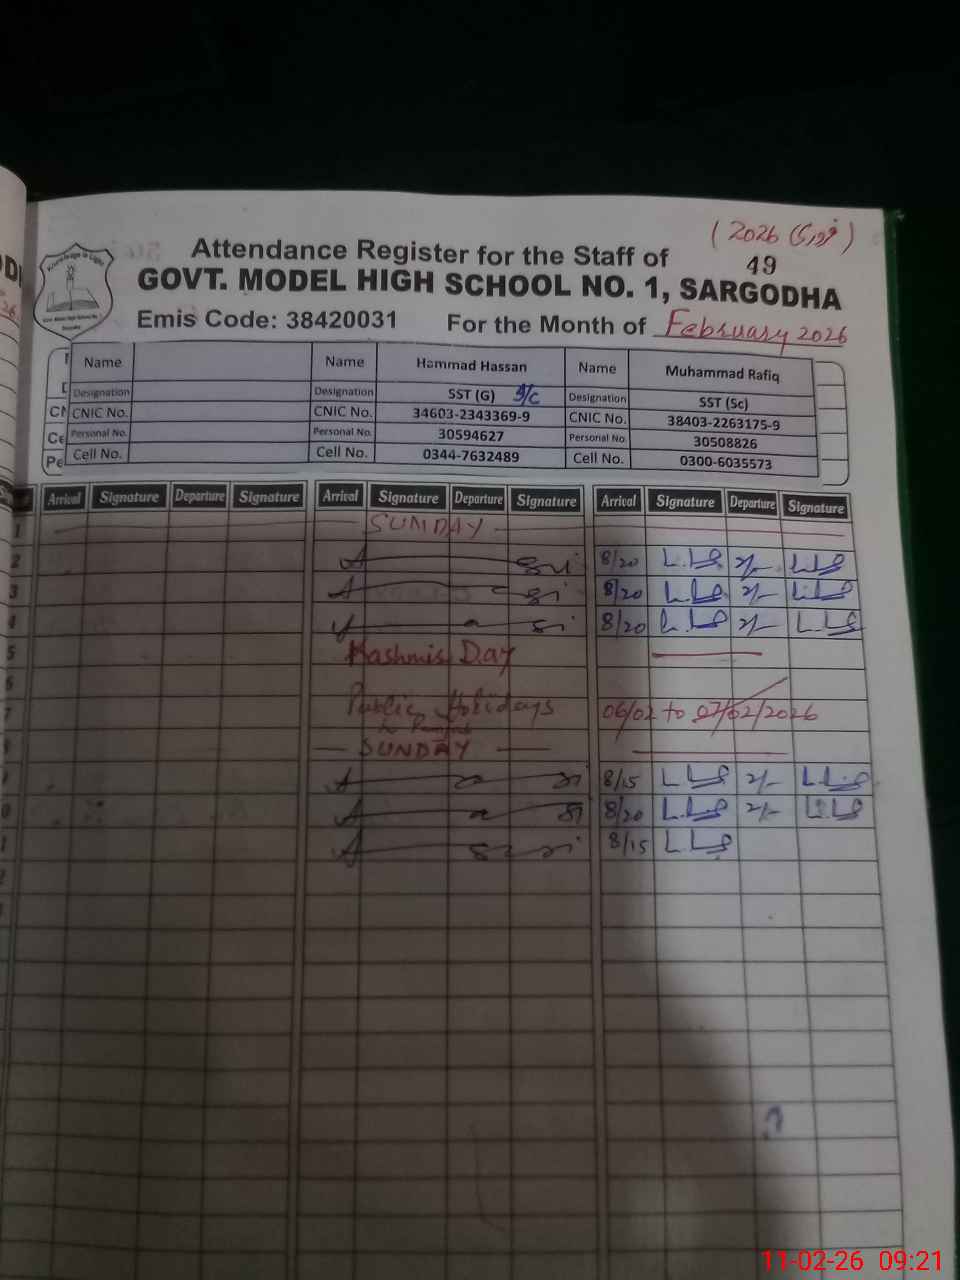 ( فروری 2026 )
49
Attendance Register for the Staff of
GOVT. MODEL HIGH SCHOOL NO. 1, SARGODHA
Emis Code: 38420031 For the Month of February 2026
Name Name Hammad Hassan Name Muhammad Rafiq
Designation Designation SST (G) S/C Designation SST (Sc)
CNIC No. CNIC No. 34603-2343369-9 CNIC No. 38403-2263175-9
Personal No. Personal No. 30594627 Personal No. 30508826
Cell No. Cell No. 0344-7632489 Cell No. 0300-6035573
Arrival Signature Departure Signature Arrival Signature Departure Signature Arrival Signature Departure Signature
1 SUNDAY
2 8/20 2/-
3 8/20 2/-
4 8/20 2/-
5 Kashmir Day
6
7 Public Holidays 06/02 to 07/02/2026
in Punjab
8 SUNDAY
9 8/15 2/-
0 8/20 2/-
1 8/15
11-02-26 09:21